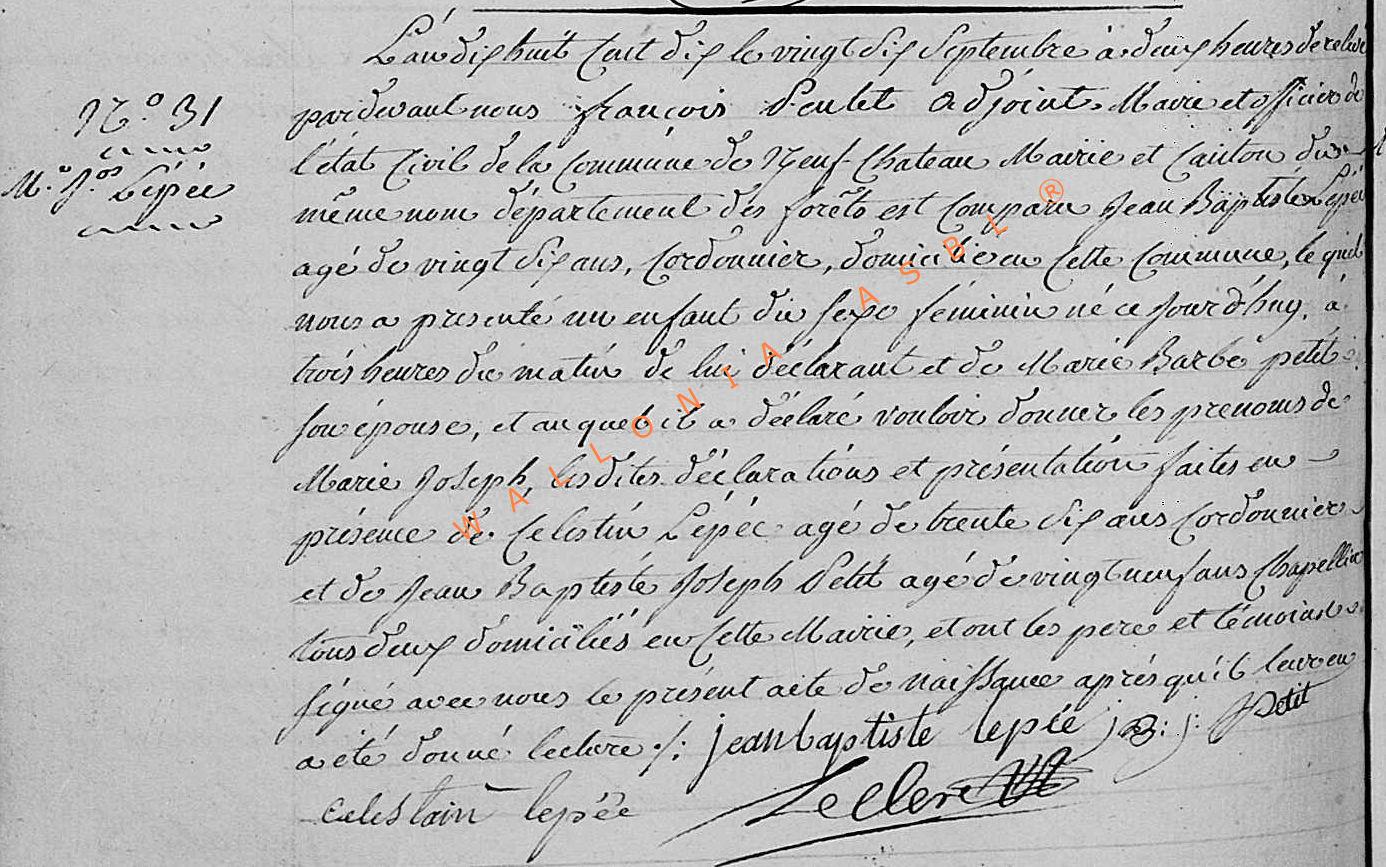 L'an dix huit cent dix le vingt six Septembre à deux heures de relevé
N.° 31
pardevant nous françois adjoint Maire et officier de
l'état Civil de la Commune de Neuf-Chateau Mairie et Canton du
M.e J.os Lépée
même nom département des forêts est Comparu Jean Baptiste Lépée
agé de vingt six ans, Cordonnier, domicilié en Cette Commune, le quel
nous a presenté un enfant du sexe féminin né ce jour d'huy, à
trois heures du matin de lui déclarant et de Marie Barbe petit
son épouse, et auquel il a déclaré vouloir donner les prenoms de
Marie Joseph, les dites déclarations et présentation faites en
présence de Celestin Lépée agé de trente six ans Cordonnier
et de Jean Baptiste Joseph Petit agé de vingt neuf ans Chapellier
tous deux domiciliés en Cette Mairie, et ont les pere et témoins
signé avec nous le présent acte de naissance après qu'il leur en
a été donné lecture ./: jean baptiste lepée j: B: j: Petit
Celestain lepée Leclere
WALLONIA ASBL ®